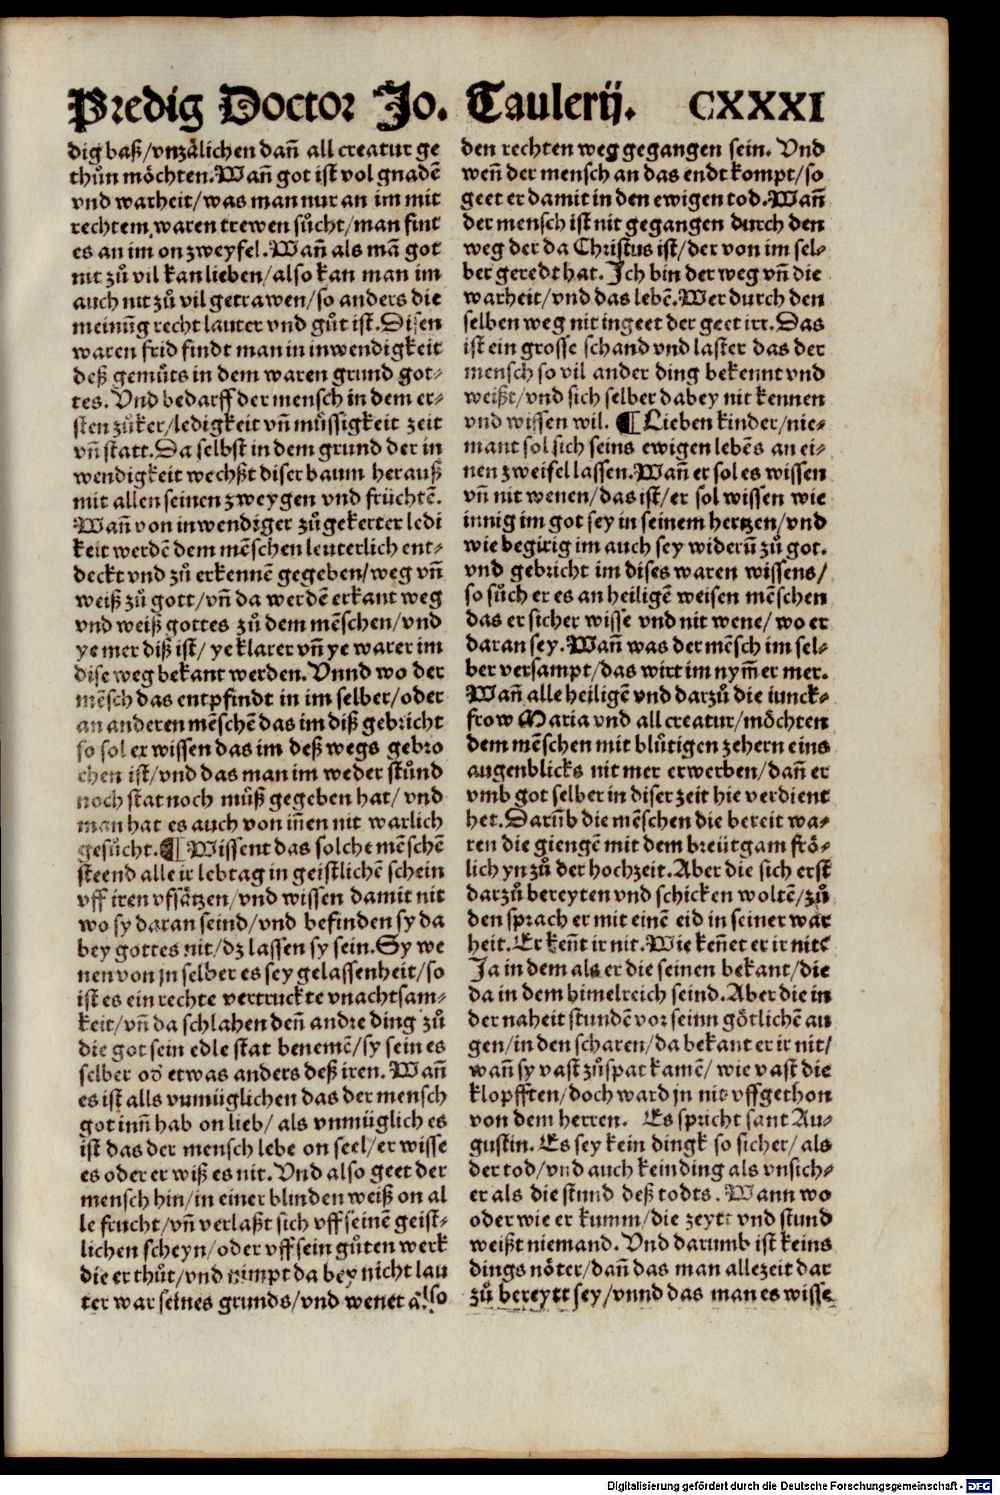 Predig Doctor Jo. Taulerij. CXXXI
dig baß/vnzålichen dañ all creatur ge
thůn möchten. Wañ got ist vol gnadē
vnd warheit/was man nur an im mit
rechtem waren trewen sůcht/man fint
es an im on zweyfel. Wañ als mā got
nit zů vil kan lieben/also kan man im
auch nit zů vil getrawen/so anders die
meinūg recht lauter vnd gůt ist. Disen
waren frid findt man in inwendigkeit
deß gemůts in dem waren grund got-
tes. Vnd bedarff der mensch in dem er-
sten zůker/ledigkeit vñ můssigkeit zeit
vñ statt. Da selbst in dem grund der in
wendigkeit wechßt diser baum herauß
mit allen seinen zweygen vnd früchtē.
Wañ von inwendiger zůgekerter ledi
keit werdē dem mēschen leuterlich ent-
deckt vnd zů erkennē gegeben/weg vñ
weiß zů gott/vñ da werdē erkant weg
vnd weiß gottes zů dem mēschen/vnd
ye mer diß ist/ ye klarer vñ ye warer im
dise weg bekant werden. Vnnd wo der
mēsch das entpfindt in im selber/oder
an anderen mēschē das im diß gebricht
so sol er wissen das im deß wegs gebro
chen ist/vnd das man im weder stůnd
noch stat noch můß gegeben hat/ vnd
man hat es auch von iñen nit warlich
gesůcht. ¶ Wissent das solche mēschē
steend alle ir lebtag in geistlichē schein
vff iren vfsätzen/vnd wissen damit nit
wo sy daran seind/vnd befinden sy da
bey gottes nit/dz lassen sy sein. Sy we
nen von jn selber es sey gelassenheit/so
ist es ein rechte vertruckte vnachtsam-
keit/vñ da schlahen deñ andre ding zů
die got sein edle stat benemē/sy sein es
selber oď etwas anders deß iren. Wañ
es ist alls vnmüglichen das der mensch
got inñ hab on lieb/ als vnmüglich es
ist das der mensch lebe on seel/er wisse
es oder er wiß es nit. Vnd also geet der
mensch hin/in einer blinden weiß on al
le frucht/vñ verlaßt sich vff seinē geist-
lichen scheyn/oder vff sein gůten werk
die er thůt/vnd nimpt da bey nicht lau
ter war seines grunds/vnd wenet also
den rechten weg gegangen sein. Vnd
weñ der mensch an das endt kompt/so
geet er damit in den ewigen tod. Wañ
der mensch ist nit gegangen durch den
weg der da Christus ist/der von im sel-
ber geredt hat. Ich bin der weg vñ die
warheit/vnd das lebē. Wer durch den
selben weg nit ingeet der geet irr. Das
ist ein grosse schand vnd laster das der
mensch so vil ander ding bekennt vnd
weißt/vnd sich selber dabey nit kennen
vnd wissen wil. ¶ Lieben kinder/nie-
mant sol sich seins ewigen lebēs an ei-
nen zweifel lassen. Wañ er sol es wissen
vñ nit wenen/das ist/er sol wissen wie
innig im got sey in seinem hertzen/vnd
wie begirig im auch sey widerū zů got.
vnd gebricht im dises waren wissens/
so sůch er es an heiligē weisen mēschen
das er sicher wisse vnd nit wene/ wo er
daran sey. Wañ was der mēsch im sel-
ber versampt/das wirt im nym̃er mer.
Wañ alle heiligē vnd darzů die iunck-
frow Maria vnd all creatur/möchten
dem mēschen mit blůtigen zehern eins
augenblicks nit mer erwerben/dañ er
vmb got selber in diser zeit hie verdient
het. Darūb die mēschen die bereit wa-
ren die giengē mit dem breütgam frö-
lich yn zů der hochzeit. Aber die sich erst
darzů bereyten vnd schicken woltē/zů
den sprach er mit einē eid in seiner war
heit. Er keñt ir nit. Wie keñet er ir nit?
Ja in dem als er die seinen bekant/die
da in dem himelreich seind. Aber die in
der naheit stundē vor seinn götlichē au
gen/in den scharen/da bekant er ir nit/
wañ sy vast zůspat kamē/ wie vast die
klopfften/doch ward jn nit vffgethon
von dem herren. Es spricht sant Au-
gustin. Es sey kein dingk so sicher/ als
der tod/vnd auch kein ding als vnsich-
er als die stund deß todts. Wann wo
oder wie er kumm/die zeytt vnd stund
weißt niemand. Vnd darumb ist keins
dings nöter/dañ das man allezeit dar
zů bereytt sey/vnnd das man es wisse
Digitalisierung gefördert durch die Deutsche Forschungsgemeinschaft - DFG